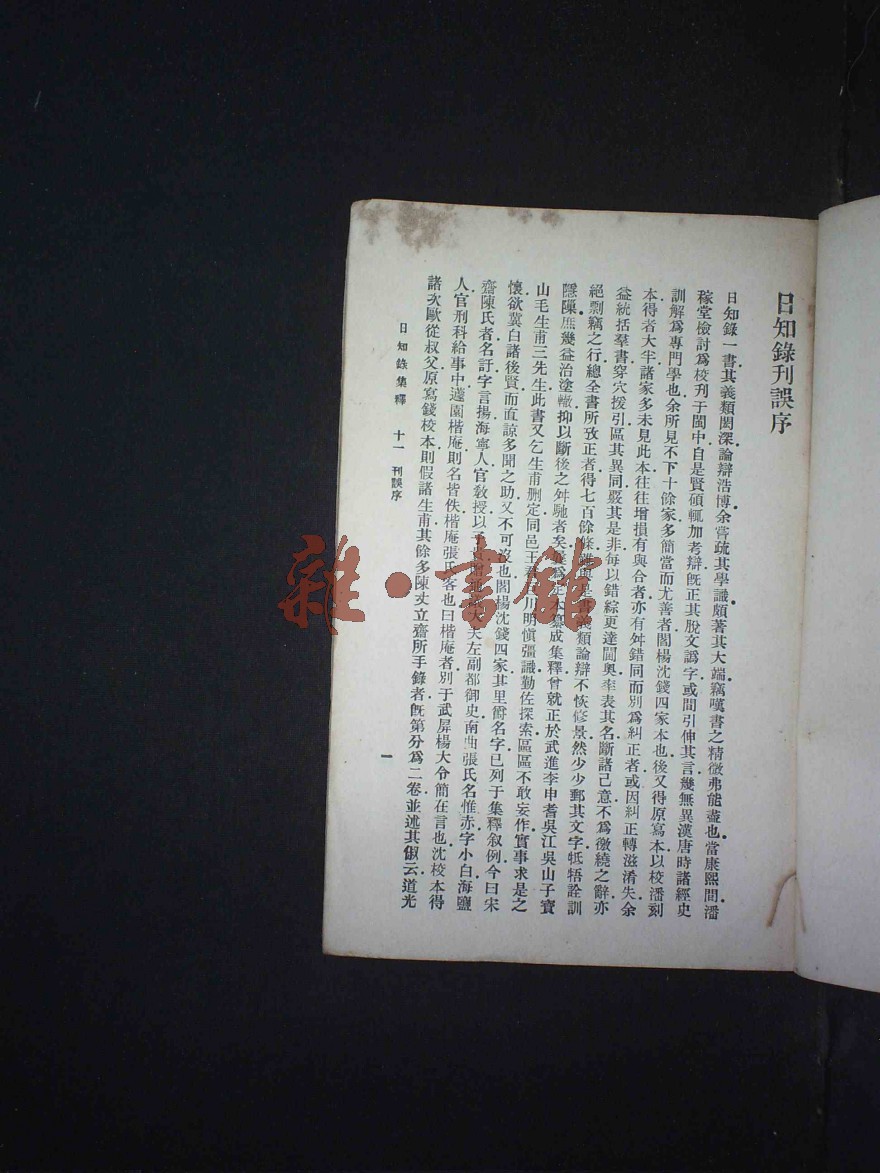 日知錄刊誤序
日知錄一書其義類閎深論辯浩博余嘗疏其學識頗著其大端竊嘆書之精微弗能盡也當康熙間潘
稼堂檢討爲校刊于閩中自是賢碩輒加考辯旣正其脫文譌字或間引伸其言幾無異漢唐時諸經史
訓解爲專門學也余所見不下十餘家多簡當而尤善者閻楊沈錢四家本也後又得原寫本以校潘刻
本得者大半諸家多未見此本往往增損有與合者亦有舛錯同而別爲糾正者或因糾正轉滋淆失余
益統括羣書穿穴援引區其異同嚴其是非每以錯綜更達閫奧率表其名斷諸己意不爲徼繞之辭亦
絕剽竊之行總全書所攷正者得七百餘條是書義類論辯不恢修景然少少郵其文字牴牾詮訓
隱庶幾益治塗轍抑以斷後之舛馳者矣爲定本纂成集釋曾就正於武進李申耆吳江吳山子寶
山毛生甫三先生此書又乞生甫删定同邑王君川明愼彊識勤佐探索區區不敢妄作實事求是之
懷欲冀白諸後賢而直諒多聞之助又不可沒也閻楊沈錢四家其里爵名字已列于集釋叙例今曰宋
齋陳氏者名訏字言揚海寧人官敎授以子大夫左副都御史南曲張氏名惟赤字小白海鹽
人官刑科給事中蘧園楷庵則名皆佚楷庵張氏客也曰楷庵者別于武屏楊大令簡在言也沈校本得
諸次歐從叔父原寫錢校本則假諸生甫其餘多陳丈立齋所手錄者旣第分爲二卷並述其俶云道光
日知錄集釋 十一 刊誤序
一
雜·書館